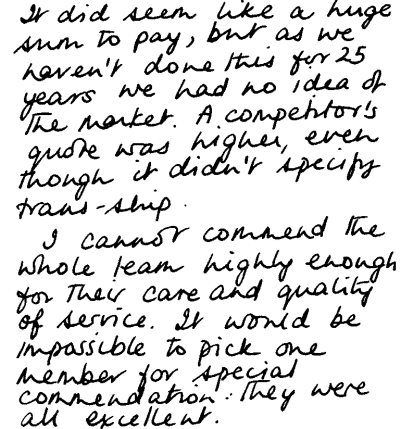 It did seem like a huge
sum to pay, but as we
haven't done this for 25
years we had no idea of
the market. A competitor's
quote was higher, even
though it didn't specify
trans-ship.
I cannot commend the
whole team highly enough
for their care and quality
of service. It would be
impossible to pick one
member for special
commendation. They were
all excellent.